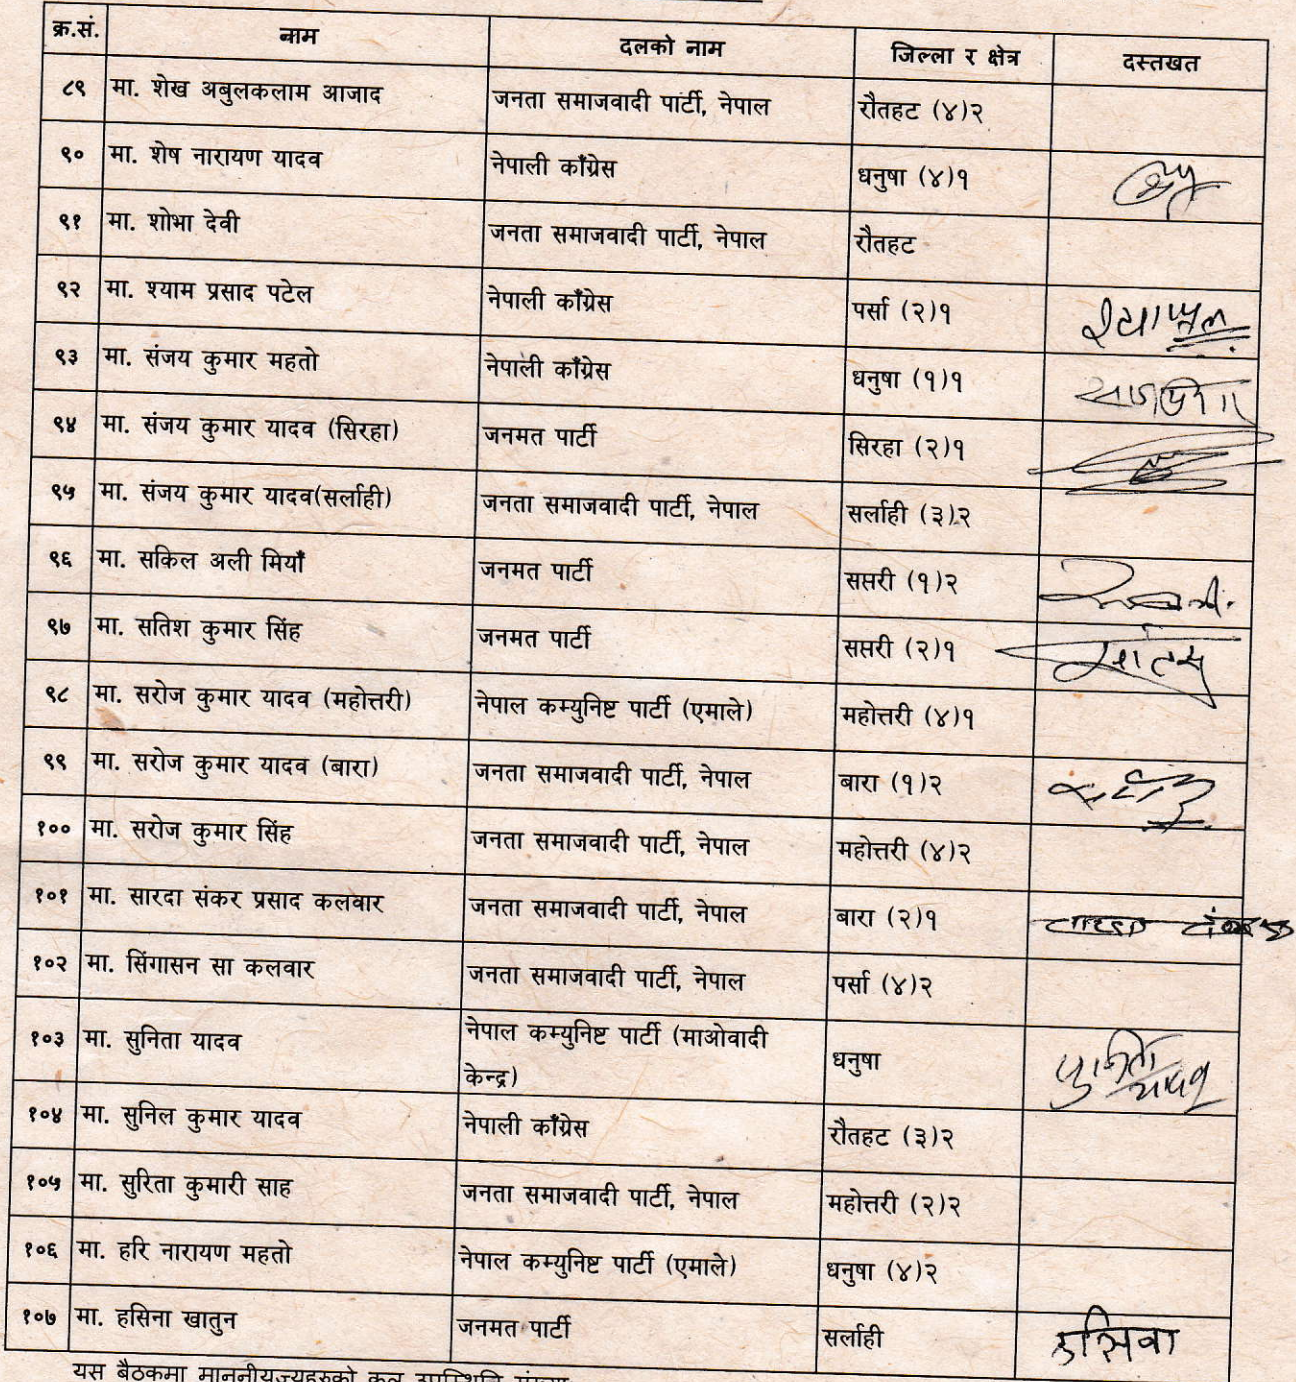 क्र.सं. नाम दलको नाम जिल्ला र क्षेत्र दस्तखत
८९ मा. शेख अबुलकलाम आजाद जनता समाजवादी पार्टी, नेपाल रौतहट (४)२
९० मा. शेष नारायण यादव नेपाली काँग्रेस धनुषा (४)१
९१ मा. शोभा देवी जनता समाजवादी पार्टी, नेपाल रौतहट
९२ मा. श्याम प्रसाद पटेल नेपाली काँग्रेस पर्सा (२)१
९३ मा. संजय कुमार महतो नेपाली काँग्रेस धनुषा (१)१
९४ मा. संजय कुमार यादव (सिरहा) जनमत पार्टी सिरहा (२)१
९५ मा. संजय कुमार यादव(सर्लाही) जनता समाजवादी पार्टी, नेपाल सर्लाही (३)२
९६ मा. सकिल अली मियाँ जनमत पार्टी सप्तरी (१)२
९७ मा. सतिश कुमार सिंह जनमत पार्टी सप्तरी (२)१
९८ मा. सरोज कुमार यादव (महोत्तरी) नेपाल कम्युनिष्ट पार्टी (एमाले) महोत्तरी (४)१
९९ मा. सरोज कुमार यादव (बारा) जनता समाजवादी पार्टी, नेपाल बारा (१)२
१०० मा. सरोज कुमार सिंह जनता समाजवादी पार्टी, नेपाल महोत्तरी (४)२
१०१ मा. सारदा संकर प्रसाद कलवार जनता समाजवादी पार्टी, नेपाल बारा (२)१
१०२ मा. सिंगासन सा कलवार जनता समाजवादी पार्टी, नेपाल पर्सा (४)२
१०३ मा. सुनिता यादव नेपाल कम्युनिष्ट पार्टी (माओवादी
केन्द्र) धनुषा
१०४ मा. सुनिल कुमार यादव नेपाली काँग्रेस रौतहट (३)२
१०५ मा. सुरिता कुमारी साह जनता समाजवादी पार्टी, नेपाल महोत्तरी (२)२
१०६ मा. हरि नारायण महतो नेपाल कम्युनिष्ट पार्टी (एमाले) धनुषा (४)२
१०७ मा. हसिना खातुन जनमत पार्टी सर्लाही हसिना
यस बैठकमा माननीयज्यूहरुको कुल उपस्थिति संख्या